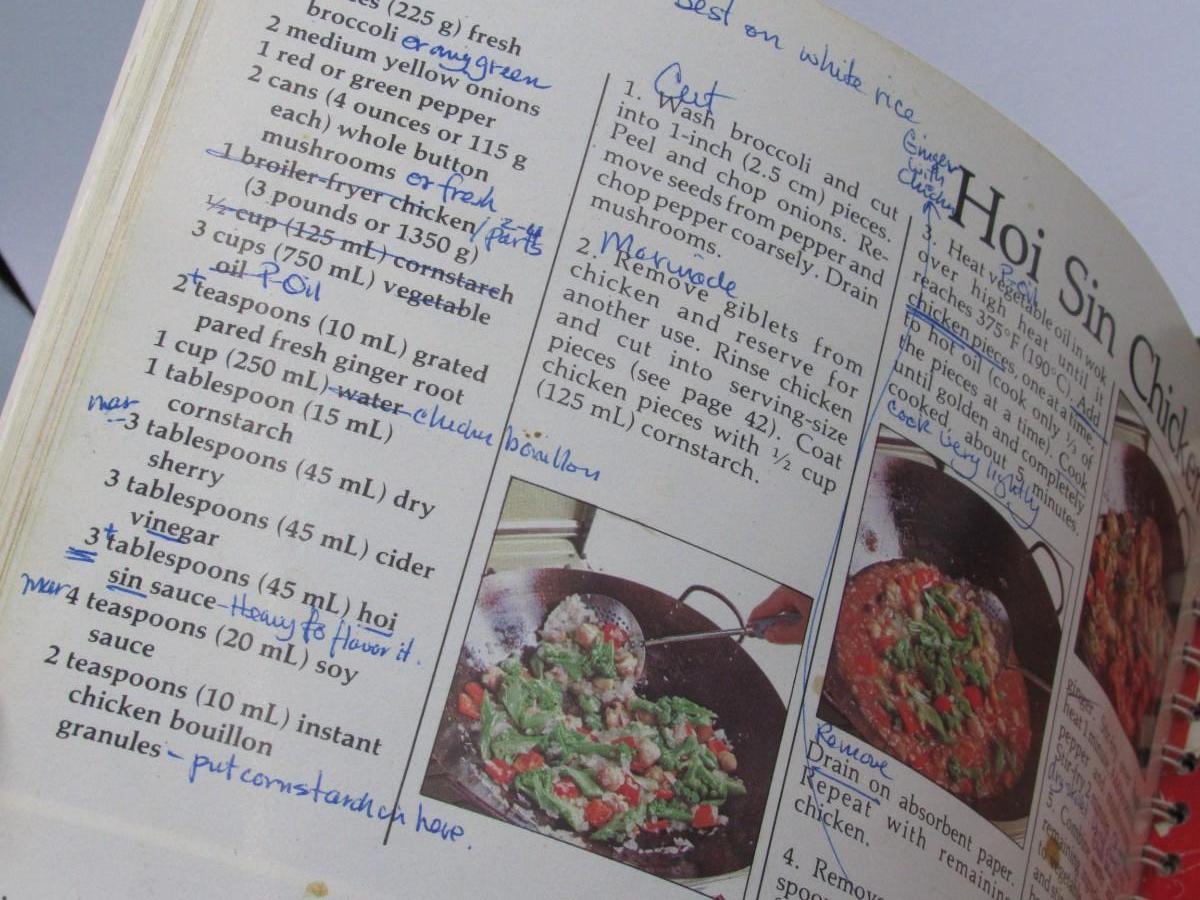 Best on white rice
Hoi Sin Chicken
(225 g) fresh
broccoli or any green
2 medium yellow onions
1 red or green pepper
2 cans (4 ounces or 115 g
each) whole button
mushrooms or fresh
1 broiler-fryer chicken / parts
(3 pounds or 1350 g)
½ cup (125 mL) cornstarch
3 cups (750 mL) vegetable
oil P-Oil
2+ teaspoons (10 mL) grated
pared fresh ginger root
1 cup (250 mL) water chicken bouillon
1 tablespoon (15 mL)
cornstarch
mar
3 tablespoons (45 mL) dry
sherry
3 tablespoons (45 mL) cider
vinegar
3+ tablespoons (45 mL) hoi
sin sauce - Heavy to flavor it.
mar 4 teaspoons (20 mL) soy
sauce
2 teaspoons (10 mL) instant
chicken bouillon
granules - put cornstarch in here.
Cut
1. Wash broccoli and cut
into 1-inch (2.5 cm) pieces.
Peel and chop onions. Re-
move seeds from pepper and
chop pepper coarsely. Drain
mushrooms.
Marinade
2. Remove giblets from
chicken and reserve for
another use. Rinse chicken
and cut into serving-size
pieces (see page 42). Coat
chicken pieces with ½ cup
(125 mL) cornstarch.
Ginger
with
chicken
3. Heat vegetable oil in wok
P-oil
over high heat until it
reaches 375°F (190°C). Add
chicken pieces, one at a time,
to hot oil (cook only ⅓ of
the pieces at a time). Cook
until golden and completely
cooked, about 5 minutes.
cook very lightly
Remove
Drain on absorbent paper.
Repeat with remaining
chicken.
4. Remove
spoon
ginger.
heat 1 minute
pepper and
Stir-fry 2
5. Combine
remaining